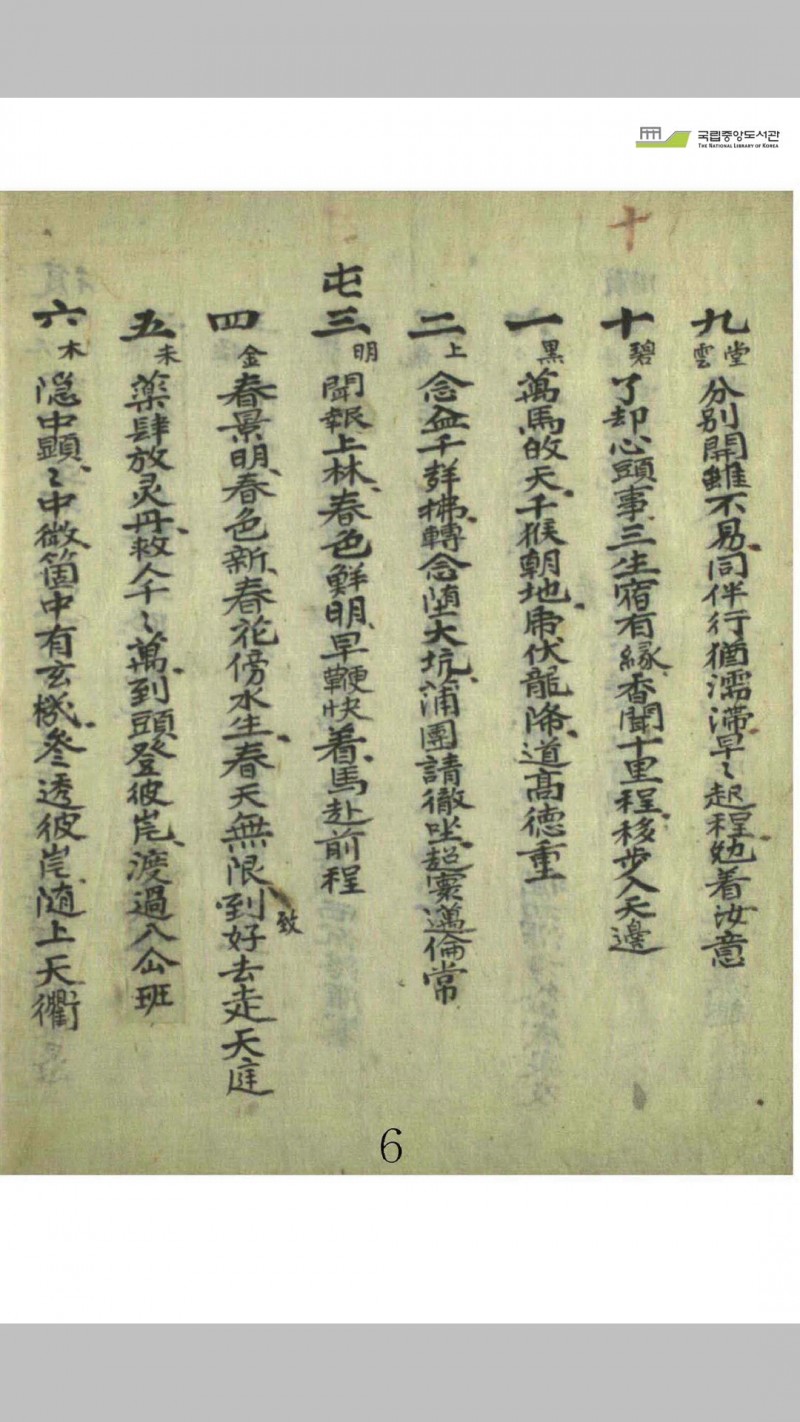 국립중앙도서관
THE NATIONAL LIBRARY OF KOREA
十
九 堂雲 分別開雖不易同伴行猶濡滯早〻起程勉着汝意
十 碧 了却心頭事三生宿有緣香聞十里程移步入天邊
一 黑 萬馬的天千猴朝地席伏龍降道高德重
二 上 念無千群拂轉念墮大坑蒲團請徹坐超寰邁倫常
屯三 明 聞報上林春色鮮明早鞭快着馬赴前程
四 金 春景明春色新春花傍水生春天無限到致好去走天庭
五 未 藥肆放灵丹救人千〻萬到頭登彼岸渡過八仚班
六 木 隐中顕〻中微箇中有玄機參透彼岸随上天衢
6